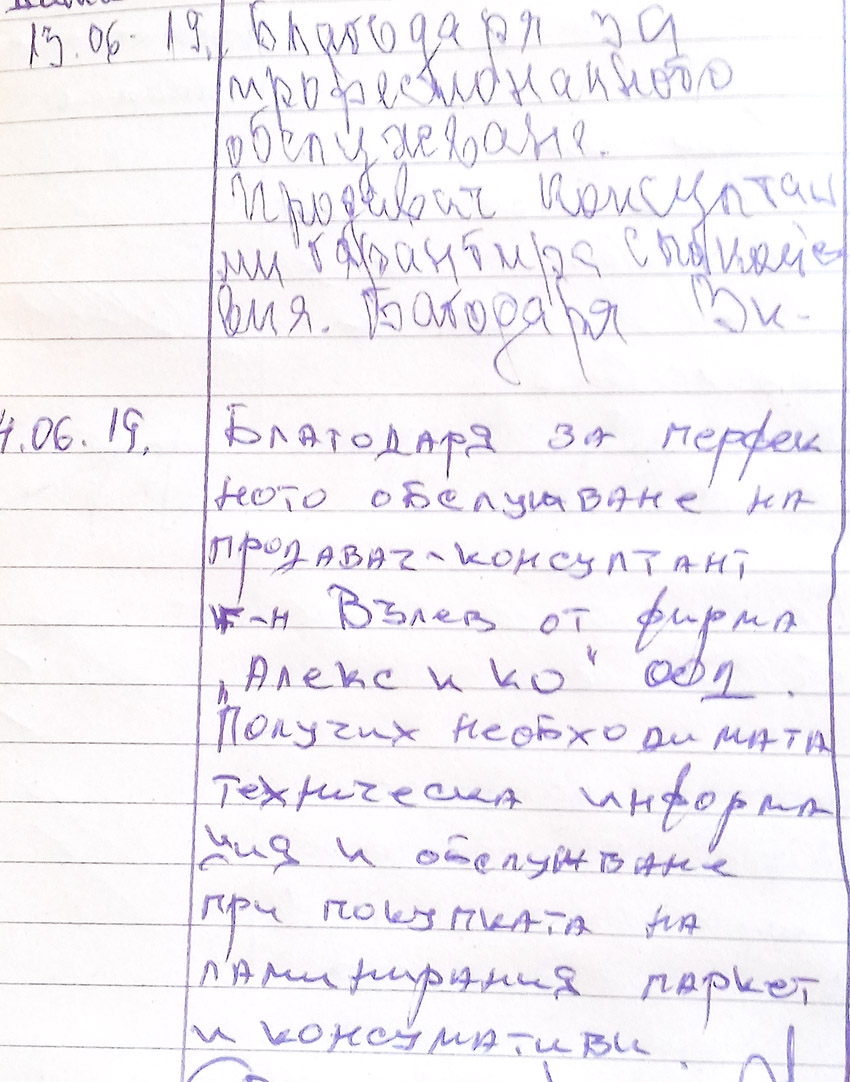 13.06.19. Благодаря за
професионалното
обслужване.
Продавач консултан
ми гарантира спокойс
вия. Багодаря Ви.
4.06.19. Благодаря за перфек
ното обслушване на
продавач-консултант
г-н Вълев от фирма
„Алекс и ко“ ООД.
Получих необходимата
техническа информа
ция и обслужване
при покупката на
ламинирания паркет
и консумативи.